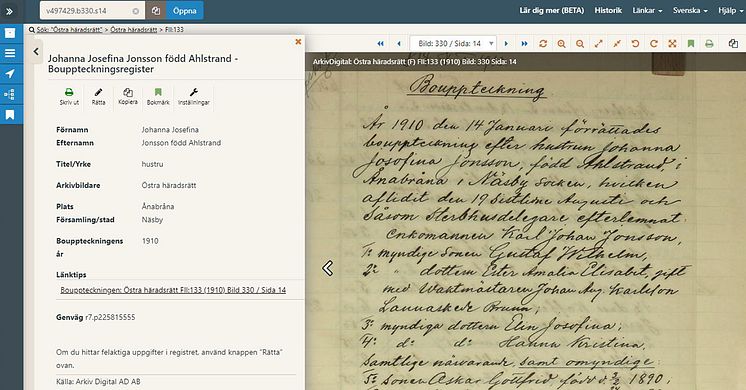 v497429.b330.s14
Öppna
Lär dig mer (BETA)
Historik
Länkar
Svenska
Hjälp
Sök: "Östra häradsrätt" > Östra häradsrätt > FII:133
Johanna Josefina Jonsson född Ahlstrand -
Bouppteckningsregister
Skriv ut
Rätta
Kopiera
Bokmärk
Inställningar
Förnamn Johanna Josefina
Efternamn Jonsson född Ahlstrand
Titel/Yrke hustru
Arkivbildare Östra häradsrätt
Plats Ånabråna
Församling/stad Näsby
Bouppteckningens 1910
år
Länktips
Bouppteckningen: Östra häradsrätt FII:133 (1910) Bild 330 / Sida 14
Genväg r7.p225815555
Om du hittar felaktiga uppgifter i registret, använd knappen "Rätta"
ovan.
Källa: Arkiv Digital AD AB
Bild: 330 / Sida: 14
ArkivDigital: Östra häradsrätt (F) FII:133 (1910) Bild: 330 Sida: 14
Bouppteckning
År 1910 den 14 Januari förrättades
bouppteckning efter hustrun Johanna
Josefina Jonsson, född Ahlstrand, i
Ånabråna i Näsby Socken, hvilken
aflidit den 19 sistline Augusti och
Såsom Sterbhusdelegare efterlemnat:
Enkomannen Karl Johan Jonsson,
1: myndige Sonen Gustaf Wilhelm,
2: " dottern Ester Amalia Elisabet, gift
med Waktmästaren Johan Aug. Karlsson
Lannaskede Brunn;
3: myndiga dottern Elin Josefina;
4: d:o d:o Hanna Kristina,
Samtlige närvarande, samt omyndige:
5: Sonen Oskar Gottfrid, född d. 1890;